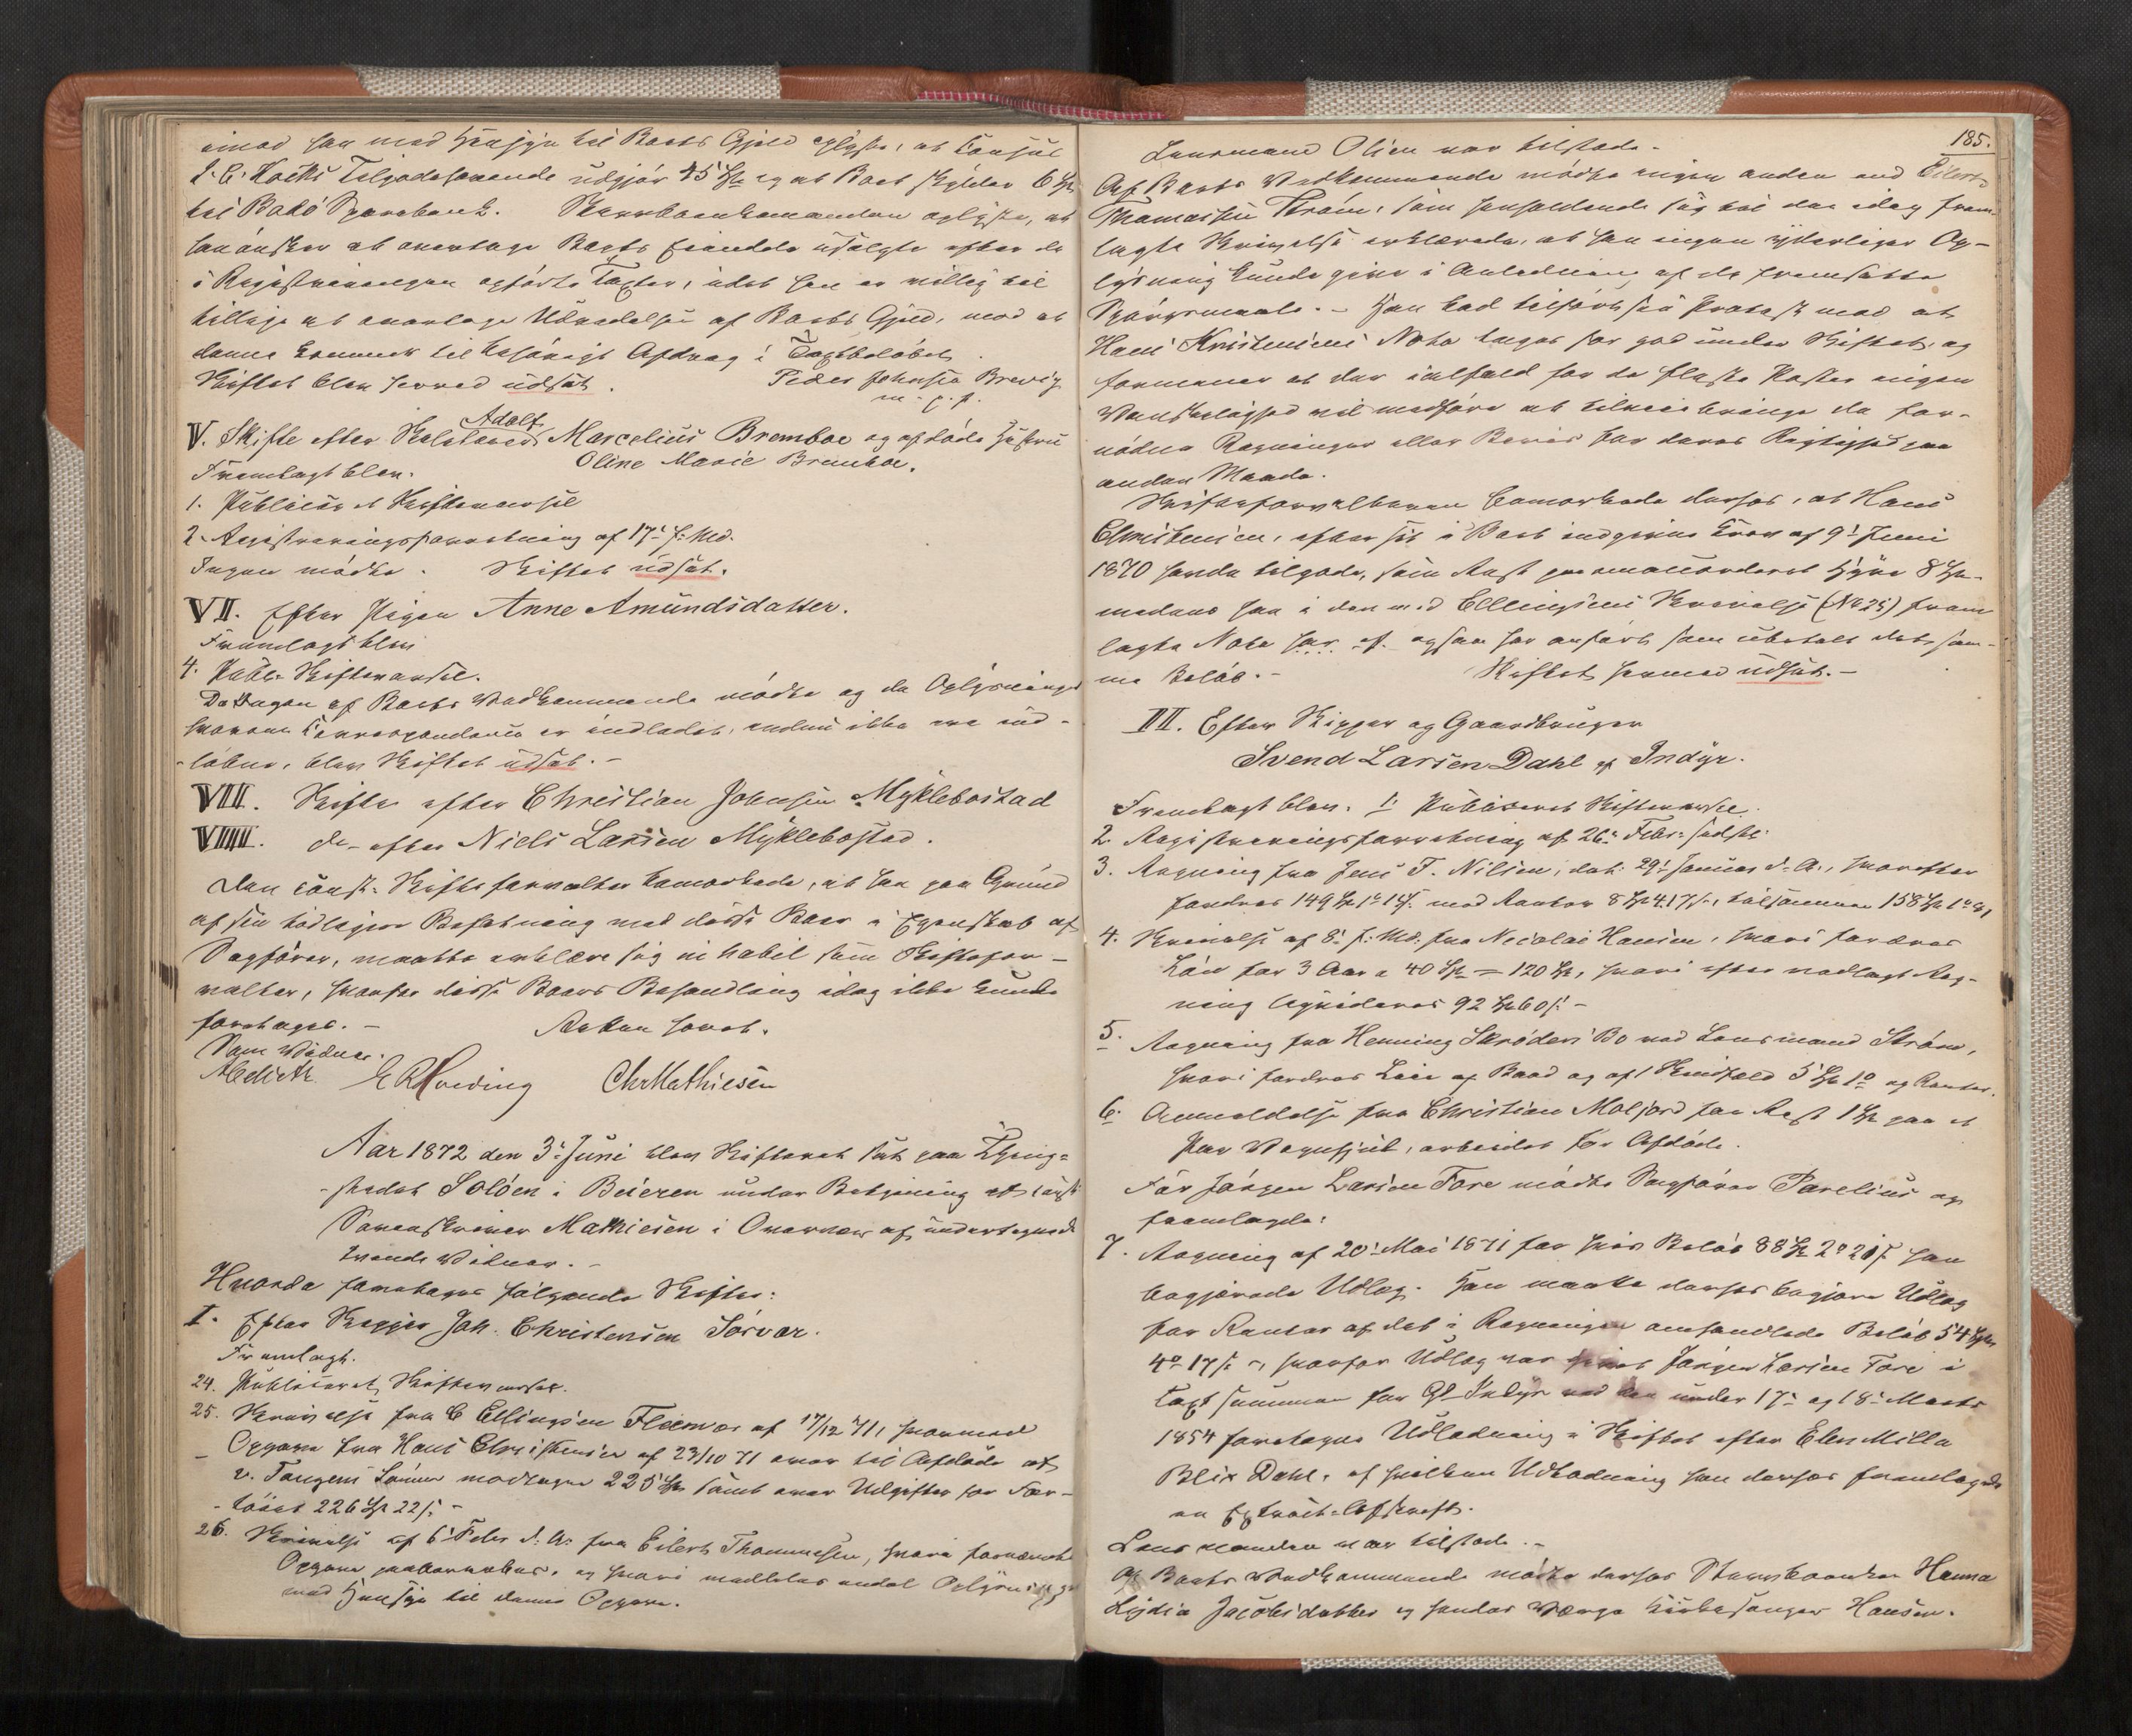 imod han med Hensyn til Boets Gjeld oplyste, at Consul
J. C. Kochs Tilgodehavende udgjør 45 Sp og at Boet skylder 6 Sp
til Bodø Sparebank. Stervboenkemanden oplyste, at
han ønsker at overtage Boets Eiendele usolgte efter de
i Registreringen opførte Taxter, idet han er villig til
tillige at overtage Udredelse af Boets Gjeld, mod at
denne kommer til Afdrag i Taxtbeløbet.
Skiftet blev herved udsat. Peder Johnsen Brevig
m. p. p.
V. Skifte efter Adolf Marcelius Bremboe og afdøde Hustru
Oline Marie Bremboe.
Fremlagt blev.
1. Publiceret Skiftevarsel
2. Registreringsforretning af 17de f. Md.
Ingen mødte. Skiftet udsat.
VII. Efter Pigen Anne Amundsdatter.
Fremlagt blev
4. Publ. Skiftevarsel.
Da Ingen af Boets Vedkommende mødte og da Oplysninger
hvorom Correspondance er indledet, endnu ikke ere ind-
løbne, blev Skiftet udsat. -
VIII. Skifte efter Christian Johnsen Myklebostad
VIIII. do- efter Niels Larsen Myklebostad.
Den const. Skifteforvalter bemærkede, at han paa Grund
af sin tidligere Befatning med disse Boer i Egenskab af
Sagfører, maatte erklære sig inhabil som Skiftefor-
valter, hvorfor disse Boers Behandling idag ikke kunde
foretages. - Retten hævet.
Som Vidner.
Chr Mathiesen
Aar 1872 den 3de Juni blev Skifteret sat paa Thing-
stedet Soløen i Beieren under Betjening af const.
Sorenskriver Mathiesen i Overvær af undertegnede
tvende Vidner. -
Hvorda foretages følgende Skifter:
I. Efter Skipper Joh. Christensen Sørvær.
Fremlagt.
24. Publiceret Skiftevarsel.
25. Skrivelse fra C Ellingsen Fleinvær af 17/12 71, hvormed
Opgave fra Hans Christensen af 23/10 71 over til Afdøde af
v. Tangens Sønner modtagne 225 Sp samt over Udgifter for Far-
tøiet 226 Sp 22 s. -
26. Skrivelse af 6te Febr d. A. fra Eilert Thommesen, hvori fornævnte
Opgave paaberaabes, og hvori meddeles endel Oplysninger
med Hensyn til denne Opgave.
185.
Lensmand Olsen var tilstede.
Af Boets Vedkommende mødte ingen anden end Eilert
Thomassen Strøm, som henholdende sig til den idag frem-
lagte Skrivelse erklærede, at han ingen yderligere Op-
lysning kunde give i Anledning af de fremsatte
Spørgsmaale. - Han bad tilført sin Protest mod at
Hans Kristensens Nota tages for god under Skiftet, og
formener at der ialfald for de fleste Poster ingen
Vanskelighed vil medføre at tilveiebringe de for-
nødne Regninger eller Bevis for deres Rigtighed paa
anden Maade.
Skifteforvalteren bemærkede derhos, at Hans
Christensen, efter sit i Boet indgivne Krav af 9de Juni
1870 havde tilgode, som Rest paa Hyre 8 Sp-
medens han i den med Ellingsens Skrivelse (No 25) frem
lagte Nota har ogsaa har anført som ubetalt det sam-
me Beløb. - Skiftet hermed udsat. -
II. Efter Skipper og Gaardbruger
Svend Larsen Dahl af Indyr.
Fremlagt blev. 1. Publiceret Skiftevarsel.
2. Registreringsforretning af 26de Febr. sidstl.
3. Regning fra Jens F. Nilsen, dat. 29de Januar d. A., hvorefter
fordres 149 Sp 1o 1 s. med Renter 8 Sp 4.17 s., tilsammen 158 Sp
4. Skrivelse af 8de f. Md. fra Nicolai Hansen, hvori fordres
Løn for 3 Aar a 40 Sp = 120 Sp, hvori efter vedlagt Reg-
ning liquideres 92 Sp 60 s. -
5. Regning fra Henning Skrøders Bo ved Lensmand Strøm,
hvori fordres Leie af Baad og af 1 Skindfeld 5 Sp 1o og Renter.
6. Anmeldelse fra Christian Moljord for Rest 1 Sp paa et
Par Vognhjul, arbeidet for Afdøde.
For Jørgen Larsen Fore mødte Sagfører Parelius og
fremlagde:
7. Regning af 20de Mai 1871 for hvis Beløb 88 Sp 2o 20 s. han
begjærede Udlæg. Han maatte derhos begjære Udlæg
for Renter af det i Regningen omhandlede Beløb 54 Sp
4o 17 s., hvorfor Udlæg var givet Jørgen Larsen Fore i
Taxtsummen for Gd Indyr ved den under 17de og 18de Marts
1854 foretagne Udlodning i Skiftet efter Elen Milla
Blix Dahl, af hvilken Udlodning han derhos fremlagde
en Extract-Afskrift.
Lensmanden var tilstede. -
Af Boets Vedkommende mødte derhos Stervboenken Hanna
Lydia Jacobsdatter og hendes Værge Kirkesanger Hansen.